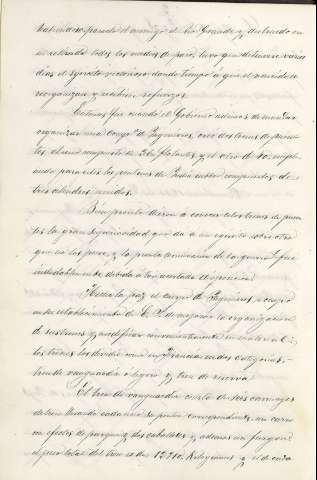 habiendo pasado el enemigo el Rio Grande y destruido en
su retirada todos los medios de paso, tuvo que detenerse varios
dias el ejército victorioso dando tiempo á que el vencido se
reorganizara y recibiera refuerzos.
Entonces fue cuando el Gobierno ademas de mandar
organizar una Comp.ª de Ingenieros, creó dos trenes de puen-
tes, el uno compuesto de 36 flotantes y el otro de 40, emple-
ando para ellos los pontones de
tres cilindros unidos.
Bien pronto dieron á conocer estos trenes de puen-
tes la gran superioridad que da á un ejército sobre otro
que no los posee, y la pronta terminacion de la guerra fue
indudablemente debida á tan acertada disposicion.
Hecha la paz el cuerpo de Ingenieros se ocupó
en el establecimiento de de mejorar la organizacion
de sus trenes y modificar convenientemente su material:
los trenes los dividió como en Francia en dos categorias,
tren de vanguardia ó ligero y tren de reserva.
El tren de vanguardia consta de seis carruages
de tren llevando cada uno su ponton correspondiente, un carro
con efectos de parque y dos caballetes y ademas un furgon:
el peso total del tren es de Kilogramos y el de cada